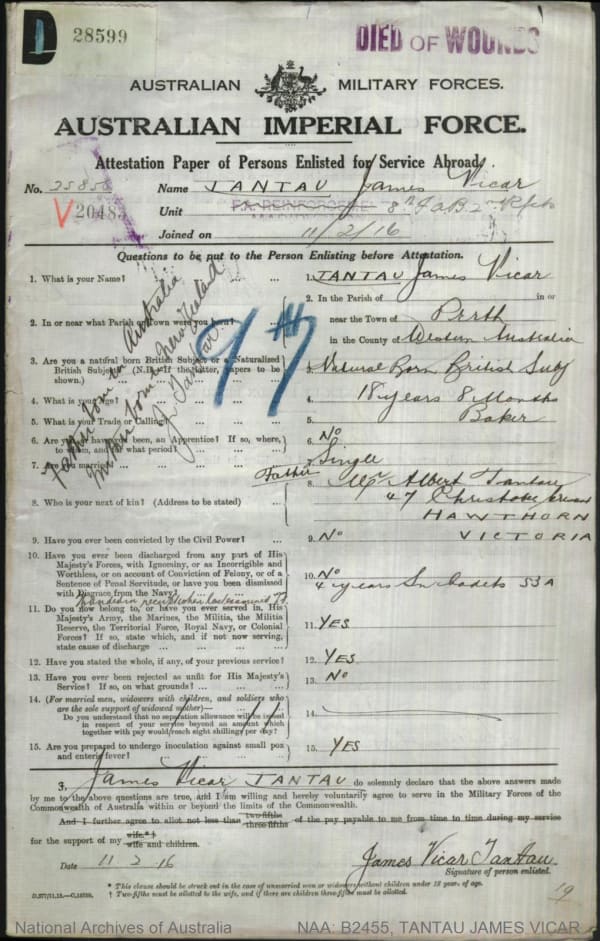 D 28599
DIED OF WOUNDS
AUSTRALIAN MILITARY FORCES.
AUSTRALIAN IMPERIAL FORCE.
Attestation Paper of Persons Enlisted for Service Abroad.
No. 25858 Name TANTAU James Vicar
V 20485 Unit F.A. REINFORCEMENTS 8th F.A.B. 2nd Rfcts
Joined on 11/2/16
Questions to be put to the Person Enlisting before Attestation.
1. What is your Name? ... ... 1. TANTAU James Vicar
2. In or near what Parish or Town were you born? ... 2. In the Parish of in or
near the Town of Perth
in the County of Western Australia
3. Are you a natural born British Subject or a Naturalized
British Subject? (N.B.—If the latter, papers to be
shown.) 3. Natural Born British Subj
4. What is your Age? 4. 18 years 8 Months
5. What is your Trade or Calling? 5. Baker
6. Are you, or have you been, an Apprentice? If so, where,
to whom, and for what period? 6. No
7. Are you married? 7. Single
8. Who is your next of kin? (Address to be stated) Father 8. Mr Albert Tantau
47
HAWTHORN
VICTORIA
Father born in Australia
Mother born in New Zealand
J. Tantau
9. Have you ever been convicted by the Civil Power? ... 9. No
10. Have you ever been discharged from any part of His
Majesty's Forces, with Ignominy, or as Incorrigible and
Worthless, or on account of Conviction of Felony, or of a
Sentence of Penal Servitude, or have you been dismissed
with Disgrace from the Navy? 10. No
4 years Sn Cadets 53A
11. Do you now belong to, or have you ever served in, His
Majesty's Army, the Marines, the Militia, the Militia
Reserve, the Territorial Force, Royal Navy, or Colonial
Forces? If so, state which, and if not now serving,
state cause of discharge ... 11. YES
12. Have you stated the whole, if any, of your previous service? 12. YES
13. Have you ever been rejected as unfit for His Majesty's
Service? If so, on what grounds? ... 13. No
14. (For married men, widowers with children, and soldiers who
are the sole support of widowed mother)—
Do you understand that no separation allowance will be issued
in respect of your service beyond an amount which
together with pay would reach eight shillings per day? 14.
15. Are you prepared to undergo inoculation against small pox
and enteric fever? 15. YES
I, James Vicar TANTAU do solemnly declare that the above answers made
by me to the above questions are true, and I am willing and hereby voluntarily agree to serve in the Military Forces of the
Commonwealth of Australia within or beyond the limits of the Commonwealth.
And I further agree to allot not less than two-fifths three-fifths of the pay payable to me from time to time during my service
for the support of my wife.*† wife and children.
Date 11 2 16 James Vicar Tantau
Signature of person enlisted.
* This clause should be struck out in the case of unmarried men or widowers without children under 18 years of age.
† Two-fifths must be allotted to the wife, and if there are children three-fifths must be allotted.
19
National Archives of Australia NAA: B2455, TANTAU JAMES VICAR